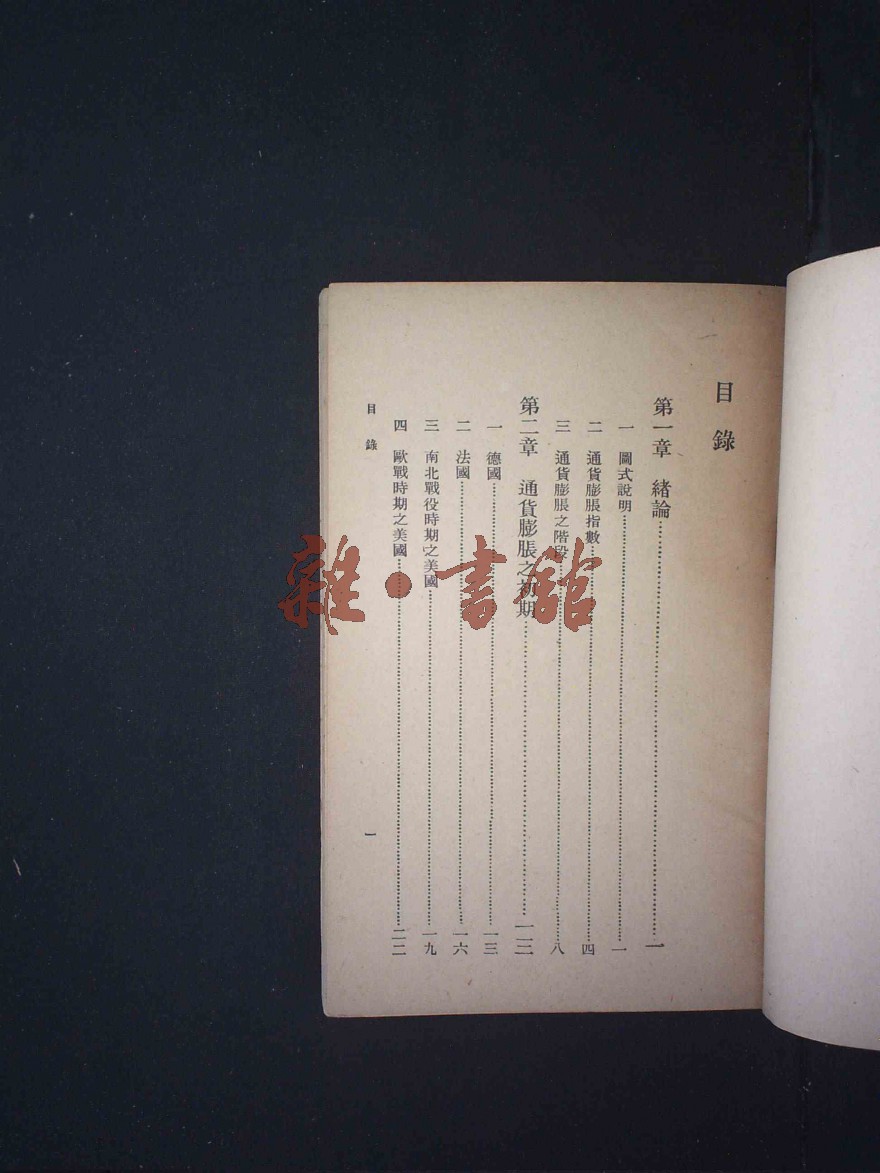 目錄
第一章 緒論⋯⋯一
一 圖式說明⋯⋯一
二 通貨膨脹指數⋯⋯四
三 通貨膨脹之階段⋯⋯八
第二章 通貨膨脹之初期⋯⋯一三
一 德國⋯⋯一三
二 法國⋯⋯一六
三 南北戰役時期之美國⋯⋯一九
四 歐戰時期之美國⋯⋯二二
目錄
一
雜·書館